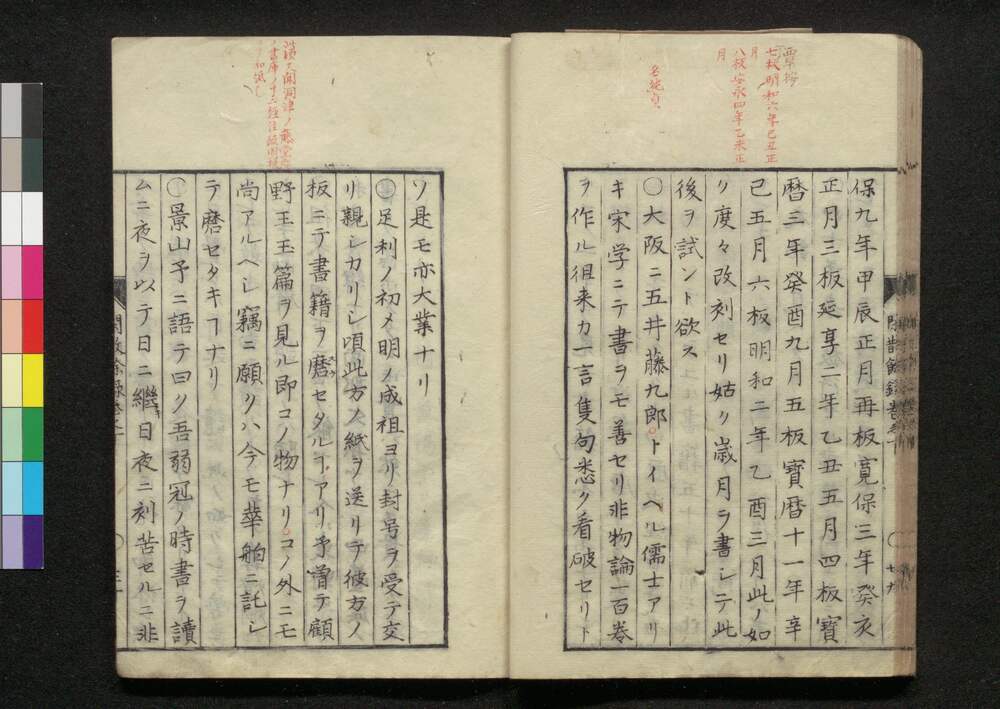 七板明和六年己丑正
月
八板安永四年乙未正
月
名純貞
保九年甲辰正月再板寛保三年癸亥
正月三板延享二年乙丑五月四板寳
暦三年癸酉九月五板寳暦十一年辛
己五月六板明和二年乙酉三月此ノ如
ク度々改刻セリ姑ク歳月ヲ書シテ此
後ヲ試ント欲ス
〇大阪ニ五井藤九郎トイヘル儒士アリ
キ宋学ニテ書ヲモ善セリ非物論一百巻
ヲ作ル徂来カ一言隻句悉ク看破セリト
ソ是モ亦大業ナリ
〇足利ノ初メ明ノ成祖ヨリ封号ヲ受テ交
リ親シカリシ頃此方ノ紙ヲ送リテ彼方ノ
板ニテ書籍ヲ磨セタルヿアリ予曽テ顧
野王玉篇ヲ見ル即コノ物ナリコノ外ニモ
尚アルヘシ竊ニ願クハ今モ華舶ニ託シ
テ磨セタキヿナリ
〇景山予ニ語テ曰ク吾弱冠ノ時書ヲ讀
ムニ夜ヲ以テ日ニ繼日夜ニ刻苦セルニ非